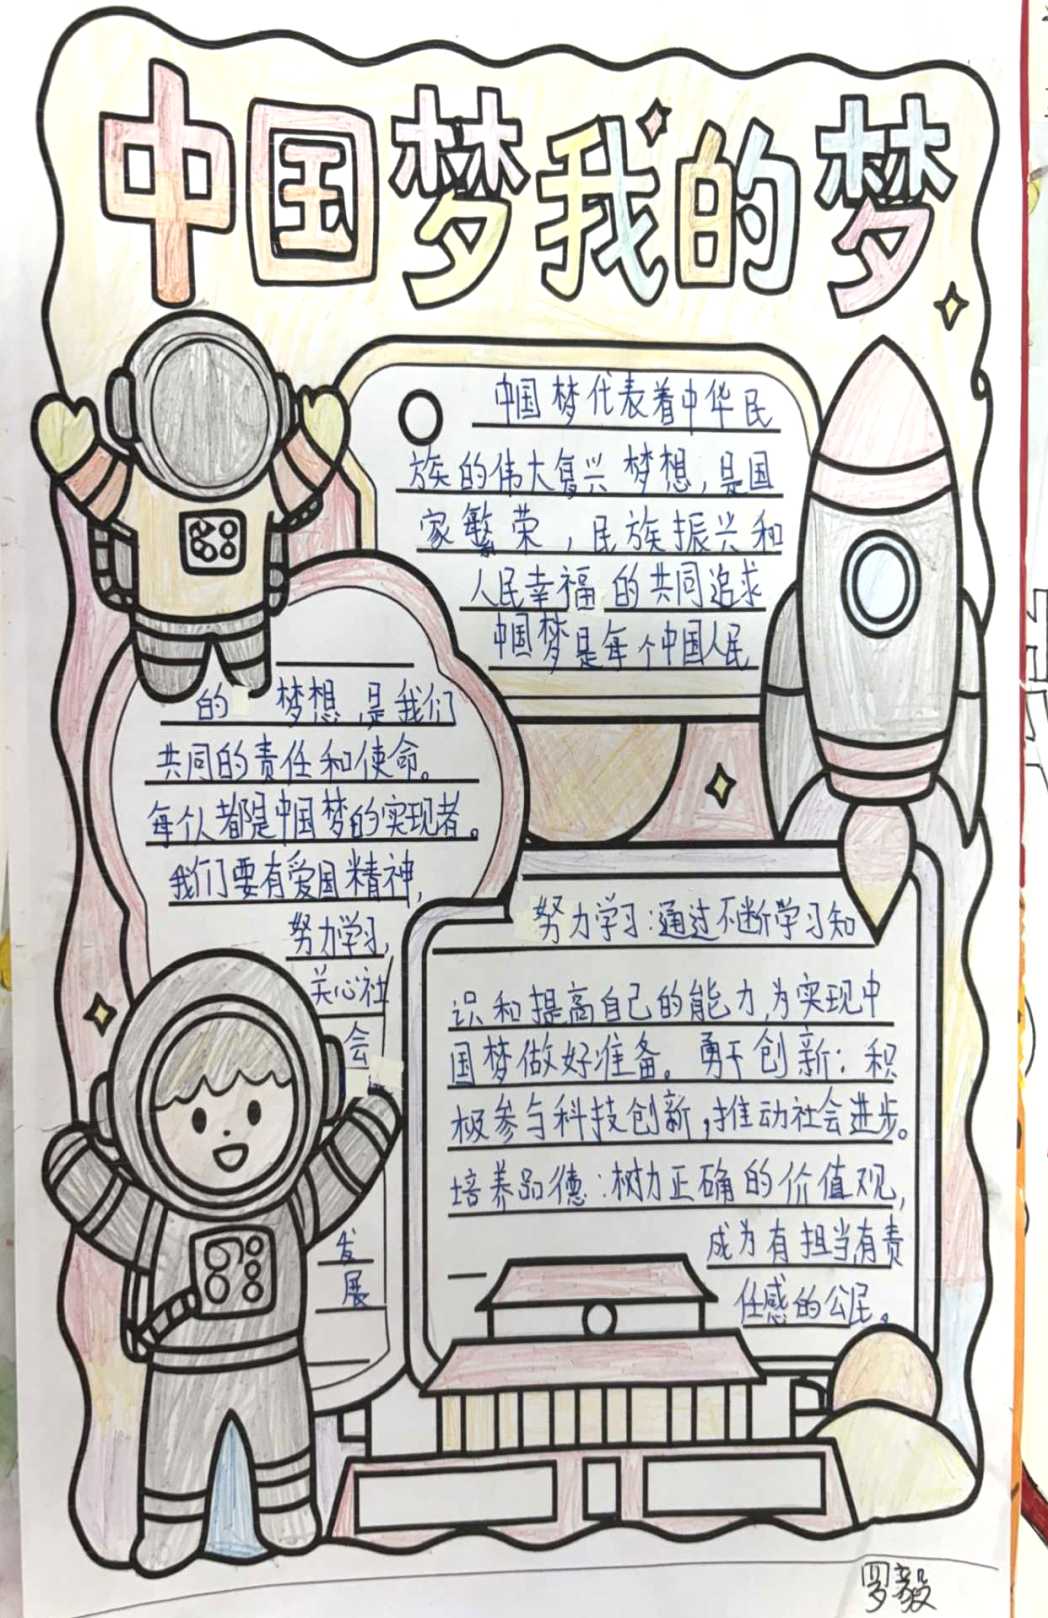 中国梦我的梦
中国梦代表着中华民
族的伟大复兴梦想,是国
家繁荣,民族振兴和
人民幸福的共同追求
中国梦是每个中国人民
的 梦想,是我们
共同的责任和使命。
每个人都是中国梦的实现者。
我们要有爱国精神,
努力学习,
关心社
会
发
展
努力学习:通过不断学习知
识和提高自己的能力,为实现中
国梦做好准备。勇于创新:积
极参与科技创新,推动社会进步。
培养品德:树力正确的价值观,
成为有担当有责
任感的公民。
罗毅